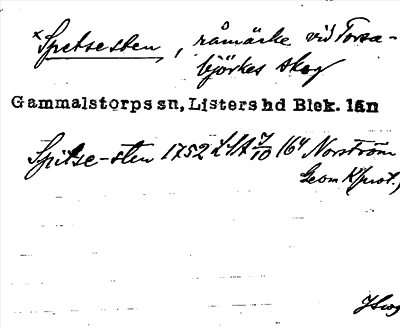 *Spetsesten, råmärke vid Torsa-
björkes skog
Gammalstorps sn, Listers hd Blek. län
Spitse-sten 1752 LSA 7/10 16⁴ Norström
Geom K(prot.)